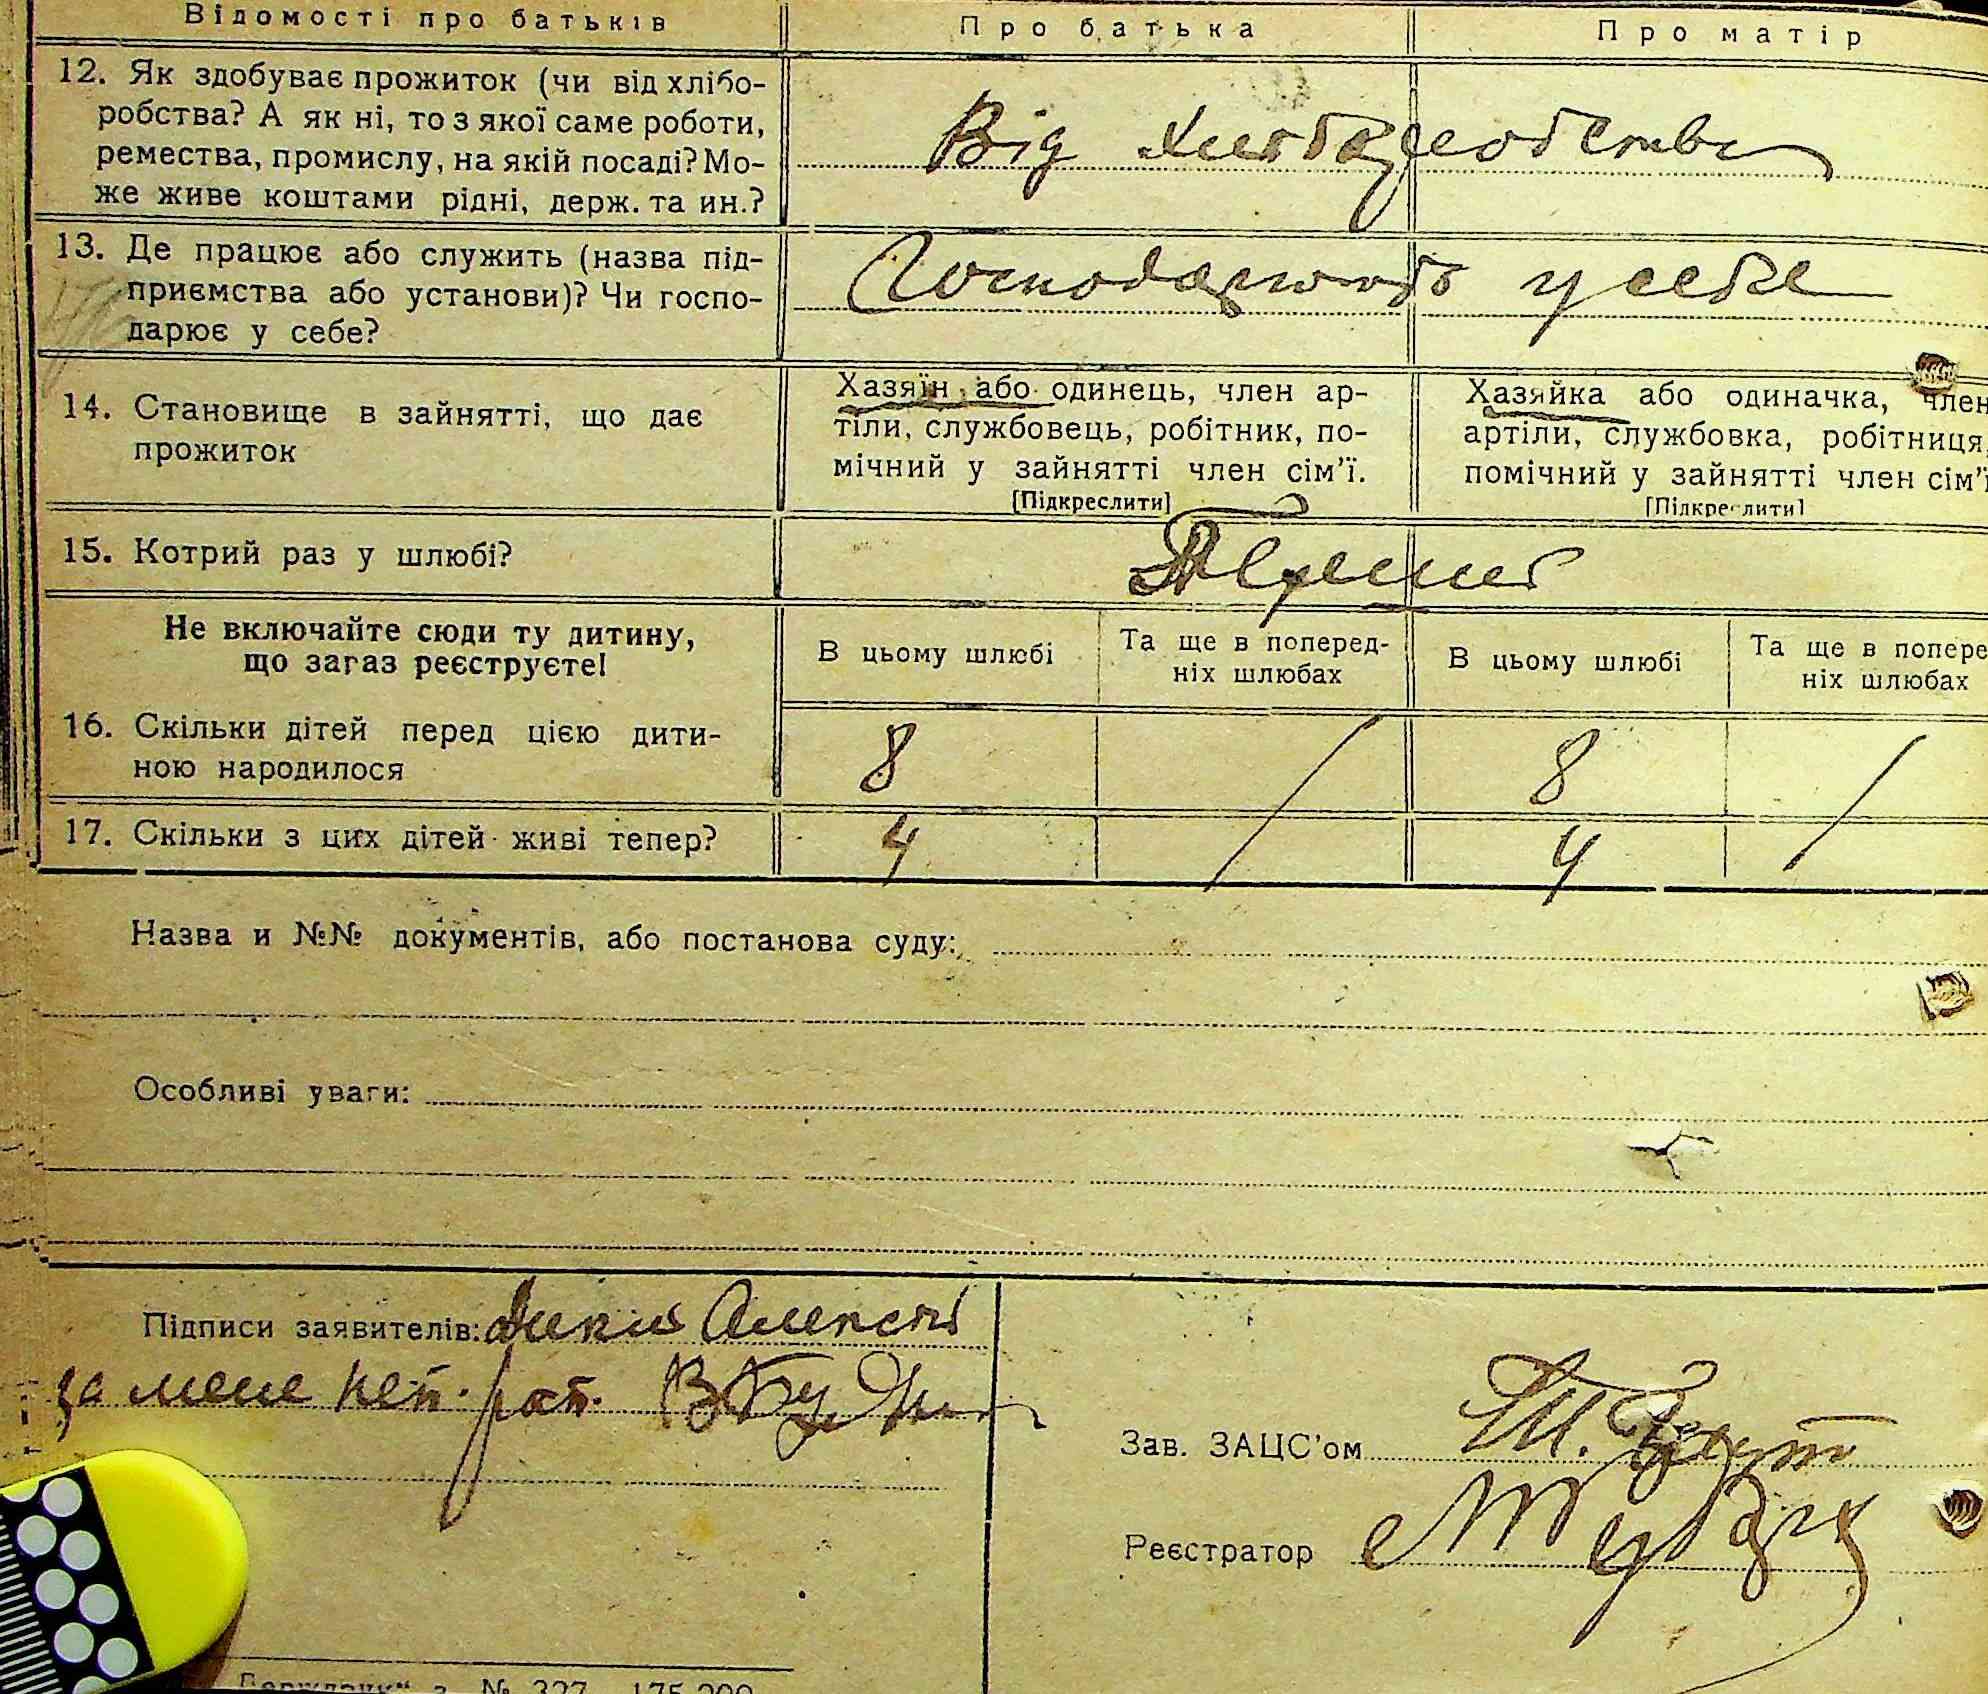 Відомості про батьків
Про батька
Про матір
12. Як здобуває прожиток (чи від хлібо-
робства? А як ні, то з якої саме роботи,
ремества, промислу, на якій посаді? Мо-
же живе коштами рідні, держ. та ин.?
Від
13. Де працює або служить (назва під-
приємства або установи)? Чи госпо-
дарює у себе?
у себе
14. Становище в зайнятті, що дає
прожиток
Хазяїн або одинець, член ар-
тіли, службовець, робітник, по-
мічний у зайнятті член сім'ї.
[Підкреслити]
Хазяйка або одиначка, член
артіли, службовка, робітниця,
помічний у зайнятті член сім'ї
[Підкреслити]
15. Котрий раз у шлюбі?
Не включайте сюди ту дитину,
що загаз реєструєте!
В цьому шлюбі
Та ще в поперед-
ніх шлюбах
В цьому шлюбі
Та ще в попере
ніх шлюбах
16. Скільки дітей перед цією дити-
ною народилося
8 / 8 /
17. Скільки з цих дітей живі тепер?
4 4
Назва и №№ документів, або постанова суду:
Особливі уваги:
Підписи заявителів:
за мене
Зав. ЗАЦС'ом
Реєстратор
№ 327 175.200